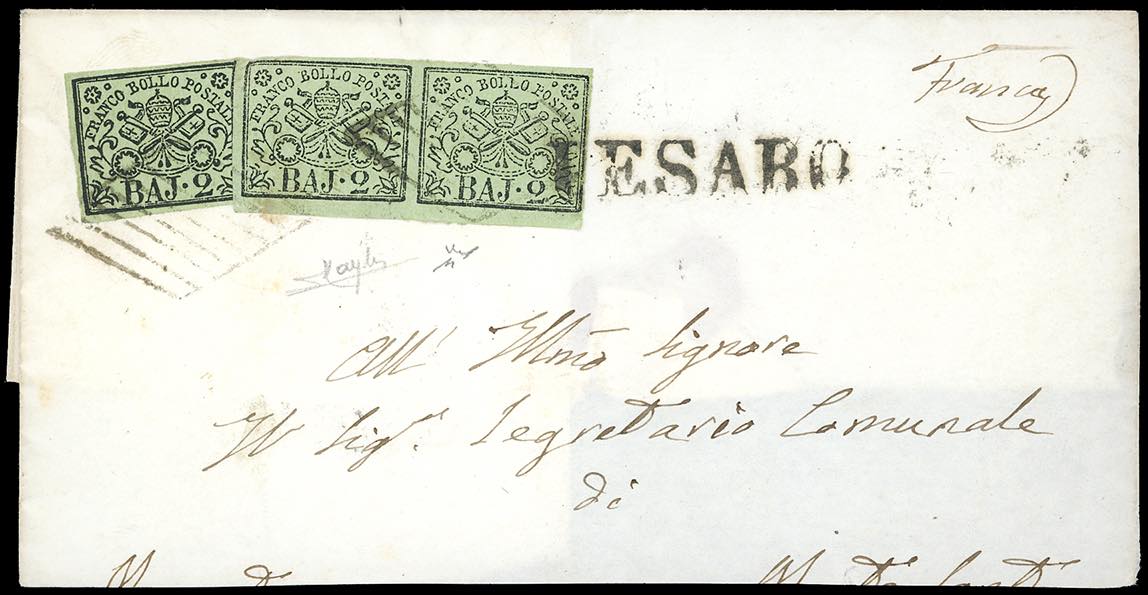 FRANCO BOLLO POSTALE
BAJ·2
FRANCO BOLLO POSTALE
BAJ·2
FRANCO BOLLO POSTALE
BAJ·2
PESARO
Franca
All' Illmo Signore
Il Sig.r Segretario Comunale
di